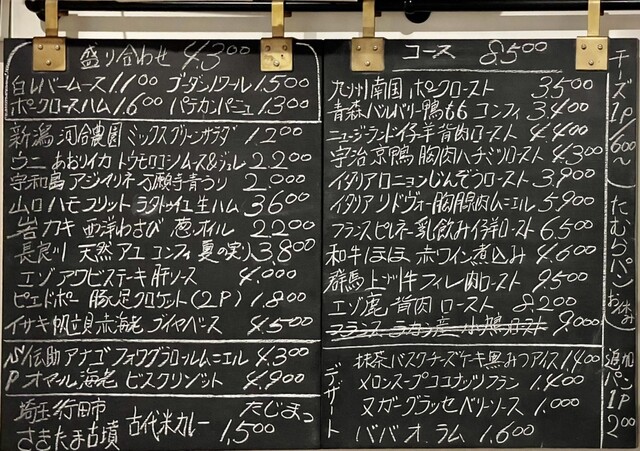 盛り合わせ 4.300
白レバームース 1.100 ゴーダンノワール 1.500
ポークロースハム 1.600 パテカンパーニュ 1.300
新潟 河合農園 ミックスグリーンサラダ 1200
ウニ あおりイカ トウモロコシムース&ジュレ 2.200
宇和島 アジ マリネ 万願寺青うり 2.000
山口 ハモ フリット ラタトゥイユ 生ハム 3600
岩ガキ 西洋わさび 葱オイル 2200
長良川 天然アユ コンフィ 夏の実り 3.800
エゾアワビステーキ 肝ソース 4.000
ピエドポー 豚足クロケット(2P) 1.800
イサキ 帆立貝 赤海老 ブイヤベース 4.500
SP 伝助アナゴ フォワグラ ロールムニエル 4.300
オマール海老 ビスクリゾット 4.900
埼玉 行田市 たじまっ
さきたま古墳 古代米カレー 1.500
コース 8.500
九州南国 ポークロースト 3500
青森 バルバリー鴨もも コンフィ 3.400
ニュージーランド 仔羊背肉ロースト 4.400
宇治 京鴨 胸肉ハチミツロースト 4.300
イタリア ロニョン じんぞうロースト 3.900
イタリア リドヴォー胸腺肉ムニエル 5.900
フランス ピレネー 乳飲み仔羊ロースト 6.500
和牛ほほ 赤ワイン煮込み 4.600
群馬 上州牛フィレ肉ロースト 9500
エゾ鹿 背肉 ロースト 8200
フランス ラカン産 小鳩ロースト 9.000
デザート
抹茶バスクチーズケーキ黒みつアイス 1.400
メロンスープココナッツフラン 1.400
ヌガーグラッセ ベリーソース 1.000
ババ オ ラム 1.600
チーズ1P 600~
たむらパン お休み
追加パン1P 200